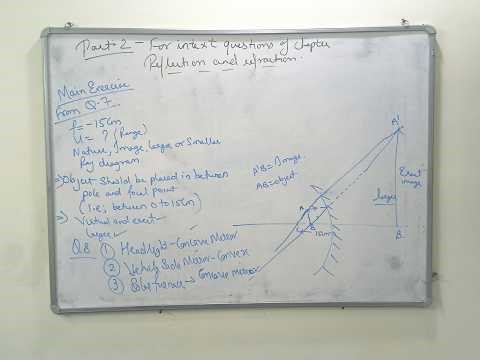 Part 2 - For intext questions of chapter
Reflection and refraction.
Main Exercise
From Q.7
f = -15cm
u = ? (Range)
Nature, Image, larger or Smaller
Ray diagram
Object Should be placed in between
pole and focal point
(i.e., between 0 to 15cm)
Virtual and erect
larger ✓
Q8 ① Headlight - Concave Mirror
② Vehicle Side Mirror - Convex
③ Solar furnace → Concave mirror
A'B' = Image
AB = object
A'
Erect
image
larger
A
B
15cm
B